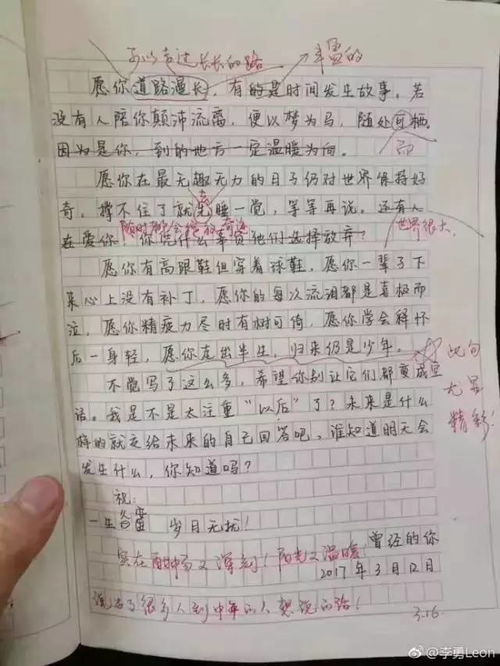 可以走过长长的路
丰富的
愿你道路漫长,有的是时间发生故事。若
没有人陪你颠沛流离,便以梦为马,随处可栖。
因为是你,到的地方一定温暖为向。
而
愿你在最无趣无力的日子仍对世界保持好
奇,撑不住了就先睡一觉,等等再说。还有人
在爱你,你凭什么辜负他们选择放弃?
世界很大
愿你有高跟鞋但穿着球鞋,愿你一辈子下
来心上没有补丁,愿你的每次流泪都是喜极而
泣,愿你精疲力尽时有树可倚,愿你学会释怀
后一身轻,愿你走出半生,归来仍是少年。
此句
尤显
精彩
不觉写了这么多,希望你别让它们都变成空
话。我是不是太注重“以后”了?未来是什么
样的就交给未来的自己回答吧,谁知道明天会
发生什么,你知道吗?
祝:
一生 岁月无忧!
实在酣畅又深刻!阳光又温暖
曾经的你
2017年3月12日
说出了很多人到中年的人想说的话!
3.16
@李勇Leon